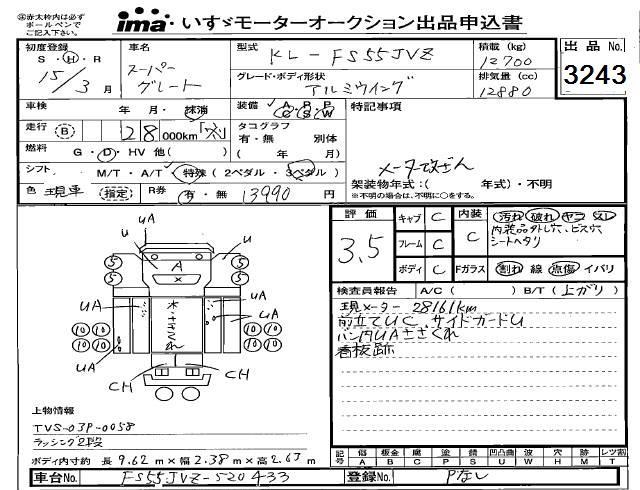 ※赤太枠内は必ずボールペンでご記入下さい。
ima いすゞモーターオークション出品申込書
初度登録 S・H・R 15/3月
車名 スーパーグレート
型式 KL-FS55JVZ
グレード・ボディ形状 アルミウイング
積載(kg) 12700
排気量(cc) 12880
出品No. 3243
車検 年 月・抹消
装備 A・P・P C S W
特記事項
走行 B 28000km
タコグラフ 有・無 別体
燃料 G・D・HV 他( )
( 年 月)
シフト M/T・A/T 特殊(2ペダル・3ペダル)
メーター改ざん
色 現車 指定
R券 有・無 13990円
架装物年式:( 年式)・不明
※不明の場合は、不明に○をする。
評価 3.5
キャブ C
フレーム C
ボディ C
内装 C
Fガラス
汚れ 破れ ヤコ スレ
内装品外し穴、ビス穴
シートヘタリ
割れ 線 点傷 イバリ
検査員報告 A/C( ) B/T(上がり)
現メーター 28161km
前立てUC サイドガードU
バン内UAささくれ
看板跡
UA
U
U
A
5
5
5
5
UA
UA
UA
UA
10 10
10 10
10 10
10 10
木
ササクれ
CH
CH
上物情報
TVS-03P-0058
ラッシング2段
ボディ内寸約 長9.62m×幅2.38m×高2.63m
記号 傷A 板金B 腐C 塗P 錆S 凹凸曲U 波W 穴H 跡M レツ割T
車台No. FS55JVZ-520433
登録No. Pなし